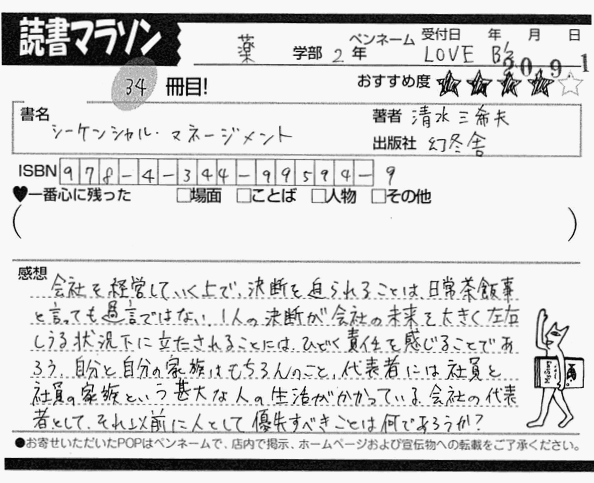 読書マラソン
薬 学部 2年 ペンネーム LOVE B'z 受付日 年 月 日
20.9.1
34 冊目! おすすめ度 ★★★★☆
書名 シーケンシャル・マネージメント
著者 清水三希夫
出版社 幻冬舎
ISBN 978-4-344-99594-9
♥一番心に残った □場面 □ことば □人物 □その他
( )
感想
会社を経営していく上で、決断を迫られることは、日常茶飯事
と言っても過言ではない。1人の決断が会社の未来を大きく左右
しうる状況下に立たされることには、ひどく責任を感じることであ
ろう。自分と自分の家族はもちろんのこと、代表者には社員と
社員の家族という甚大な人の生活がかかっている。会社の代表
者として、それ以前に人として優先すべきことは何であろうか?
●お寄せいただいたPOPはペンネームで、店内で掲示、ホームページおよび宣伝物への転載をご了承ください。